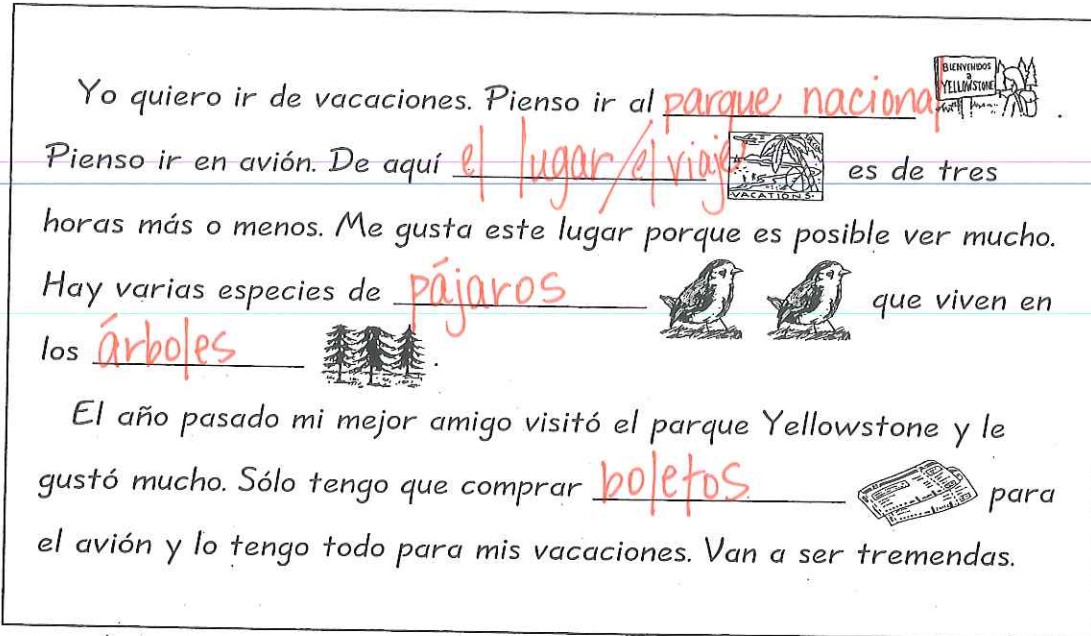 BIENVENIDOS
a
YELLOWSTONE
Yo quiero ir de vacaciones. Pienso ir al parque nacional .
Pienso ir en avión. De aquí el lugar/el viaje es de tres
VACATIONS
horas más o menos. Me gusta este lugar porque es posible ver mucho.
Hay varias especies de pájaros que viven en
los árboles .
El año pasado mi mejor amigo visitó el parque Yellowstone y le
gustó mucho. Sólo tengo que comprar boletos para
el avión y lo tengo todo para mis vacaciones. Van a ser tremendas.